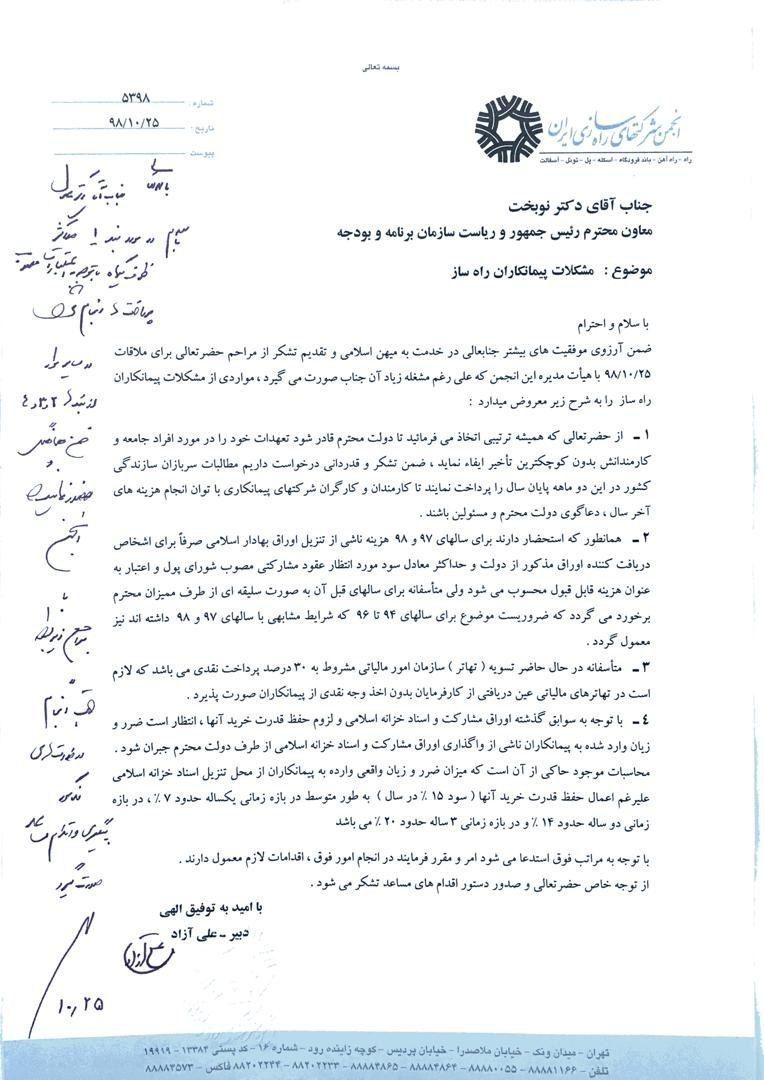 بسمه تعالی
شماره : ۵۳۹۸
تاریخ : ۹۸/۱۰/۲۵
پیوست
انجمن شرکتهای راه سازی ایران
راه - راه آهن - باند فرودگاه - اسکله - پل - تونل - آسفالت
جناب آقای دکتر نوبخت
معاون محترم رئیس جمهور و ریاست سازمان برنامه و بودجه
موضوع : مشکلات پیمانکاران راه ساز
با سلام و احترام
ضمن آرزوی موفقیت های بیشتر جنابعالی در خدمت به میهن اسلامی و تقدیم تشکر از مراحم حضرتعالی برای ملاقات
۹۸/۱۰/۲۵ با هیأت مدیره این انجمن که علی رغم مشغله زیاد آن جناب صورت می گیرد ، مواردی از مشکلات پیمانکاران
راه ساز را به شرح زیر معروض میدارد :
۱ ـ از حضرتعالی که همیشه ترتیبی اتخاذ می فرمائید تا دولت محترم قادر شود تعهدات خود را در مورد افراد جامعه و
کارمندانش بدون کوچکترین تأخیر ایفاء نماید ، ضمن تشکر و قدردانی درخواست داریم مطالبات سربازان سازندگی
کشور در این دو ماهه پایان سال را پرداخت نمایند تا کارمندان و کارگران شرکتهای پیمانکاری با توان انجام هزینه های
آخر سال ، دعاگوی دولت محترم و مسئولین باشند .
۲ ـ همانطور که استحضار دارند برای سالهای ۹۷ و ۹۸ هزینه ناشی از تنزیل اوراق بهادار اسلامی صرفاً برای اشخاص
دریافت کننده اوراق مذکور از دولت و حداکثر معادل سود مورد انتظار عقود مشارکتی مصوب شورای پول و اعتبار به
عنوان هزینه قابل قبول محسوب می شود ولی متأسفانه برای سالهای قبل آن به صورت سلیقه ای از طرف ممیزان محترم
برخورد می گردد که ضروریست موضوع برای سالهای ۹۴ تا ۹۶ که شرایط مشابهی با سالهای ۹۷ و ۹۸ داشته اند نیز
معمول گردد .
۳ ـ متأسفانه در حال حاضر تسویه ( تهاتر ) سازمان امور مالیاتی مشروط به ۳۰ درصد پرداخت نقدی می باشد که لازم
است در تهاترهای مالیاتی عین دریافتی از کارفرمایان بدون اخذ وجه نقدی از پیمانکاران صورت پذیرد .
۴ ـ با توجه به سوابق گذشته اوراق مشارکت و اسناد خزانه اسلامی و لزوم حفظ قدرت خرید آنها ، انتظار است ضرر و
زیان وارد شده به پیمانکاران ناشی از واگذاری اوراق مشارکت و اسناد خزانه اسلامی از طرف دولت محترم جبران شود .
محاسبات موجود حاکی از آن است که میزان ضرر و زیان واقعی وارده به پیمانکاران از محل تنزیل اسناد خزانه اسلامی
علیرغم اعمال حفظ قدرت خرید آنها ( سود ۱۵ ٪ در سال ) به طور متوسط در بازه زمانی یکساله حدود ۷ ٪ ، در بازه
زمانی دو ساله حدود ۱۴ ٪ و در بازه زمانی ۳ ساله حدود ۲۰ ٪ می باشد
با توجه به مراتب فوق استدعا می شود امر و مقرر فرمایند در انجام امور فوق ، اقدامات لازم معمول دارند .
از توجه خاص حضرتعالی و صدور دستور اقدام های مساعد تشکر می شود .
با امید به توفیق الهی
دبیر ـ علی آزاد
علی آزاد
در مورد بند ۱
انجمن
با
انجام
پیگیری و اقدام
۱۰/۲۵
تهران - میدان ونک - خیابان ملاصدرا - خیابان پردیس - کوچه زاینده رود - شماره ۱۶ - کد پستی ۱۳۳۸۴ - ۱۹۹۱۹
تلفن - ۸۸۸۸۱۱۶۶ - ۸۸۸۸۰۰۵۵ - ۸۸۸۸۴۸۶۴ - ۸۸۸۸۴۸۶۵ - ۸۸۲۰۲۲۳۳ - ۸۸۲۰۲۲۴۴ فاکس - ۸۸۸۸۴۵۷۳